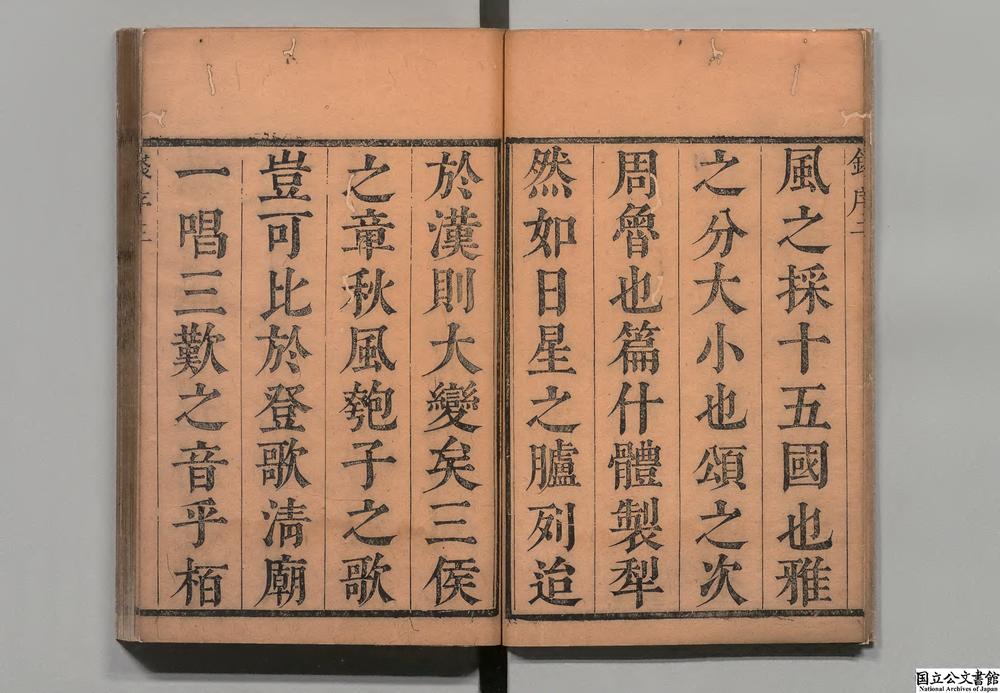 風之採十五國也雅
之分大小也頌之次
周魯也篇什體製犁
然如日星之臚列迨
於漢則大變矣三侯
之章秋風瓠子之歌
豈可比於登歌清廟
一唱三歎之音乎栢
錢序三
国立公文書館
National Archives of Japan